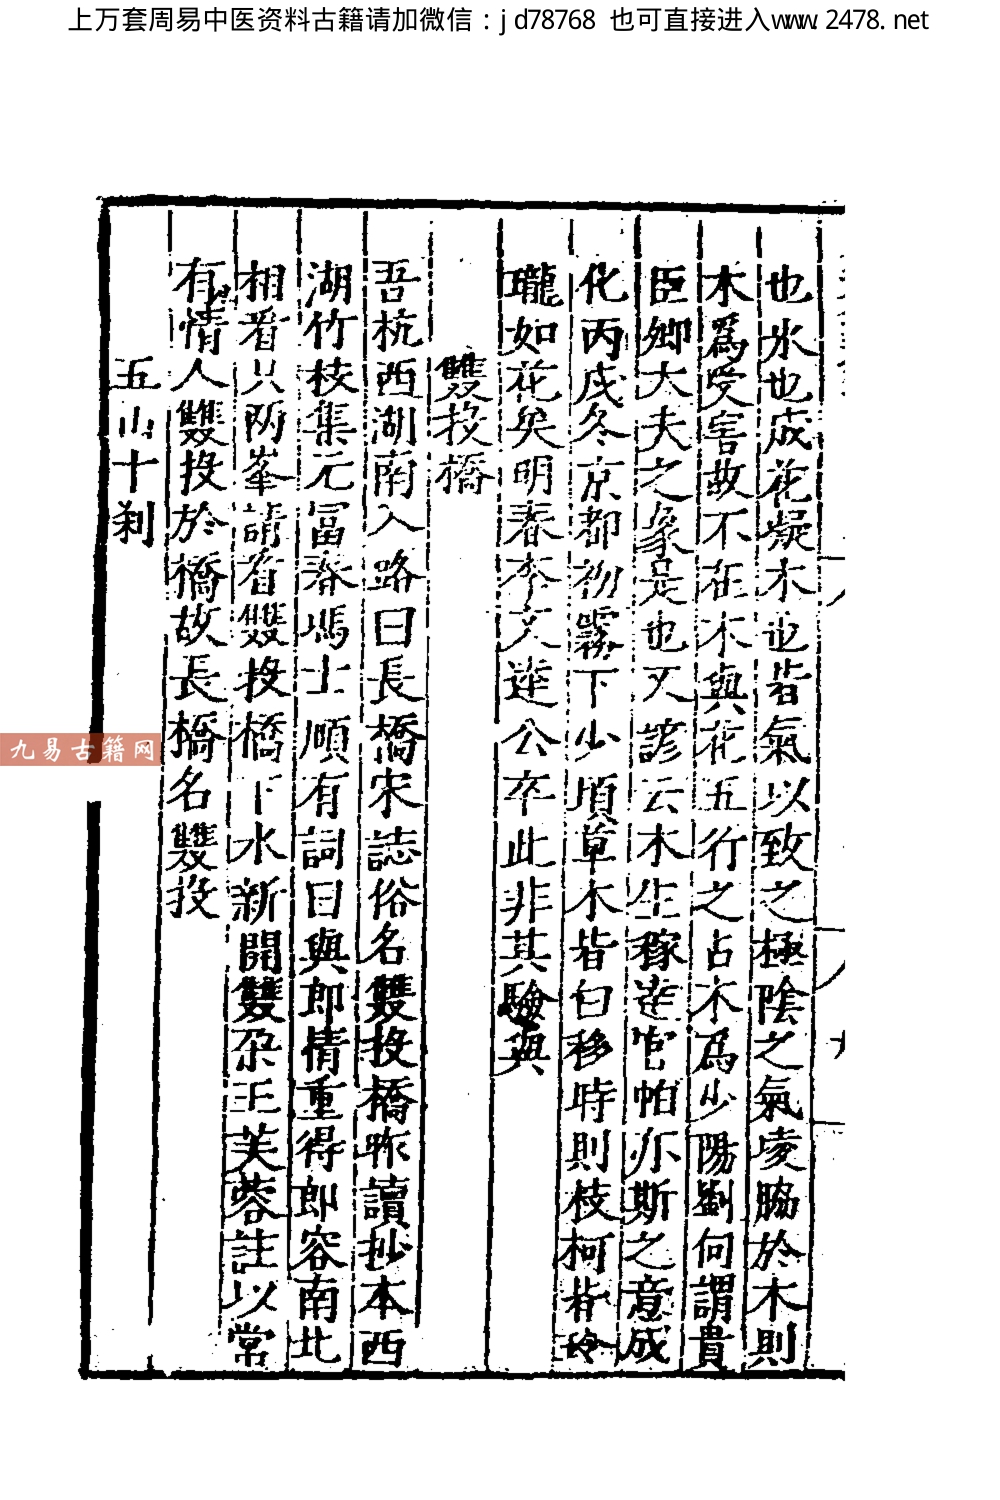 上万套周易中医资料古籍请加微信：jd78768 也可直接进入www.2478.net
也水也成花凝木也皆氣以致之極陰之氣凌脇於木則
木爲受害故不在木與花五行之占木爲少陽劉向謂貴
臣卿大夫之象是也又諺云木生稼達官怕亦斯之意成
化丙戌冬京都初霧下少頃草木皆白移時則枝柯皆玲
瓏如花矣明春李文達公卒此非其驗與
雙投橋
吾杭西湖南入路曰長橋宋誌俗名雙投橋昨讀抄本西
湖竹枝集元冨春馮士頤有詞曰與郎情重得郎容南北
相看只兩峯請看雙投橋下水新開雙朶玉芙蓉註以常
有情人雙投於橋故長橋名雙投
五山十刹
九易古籍网